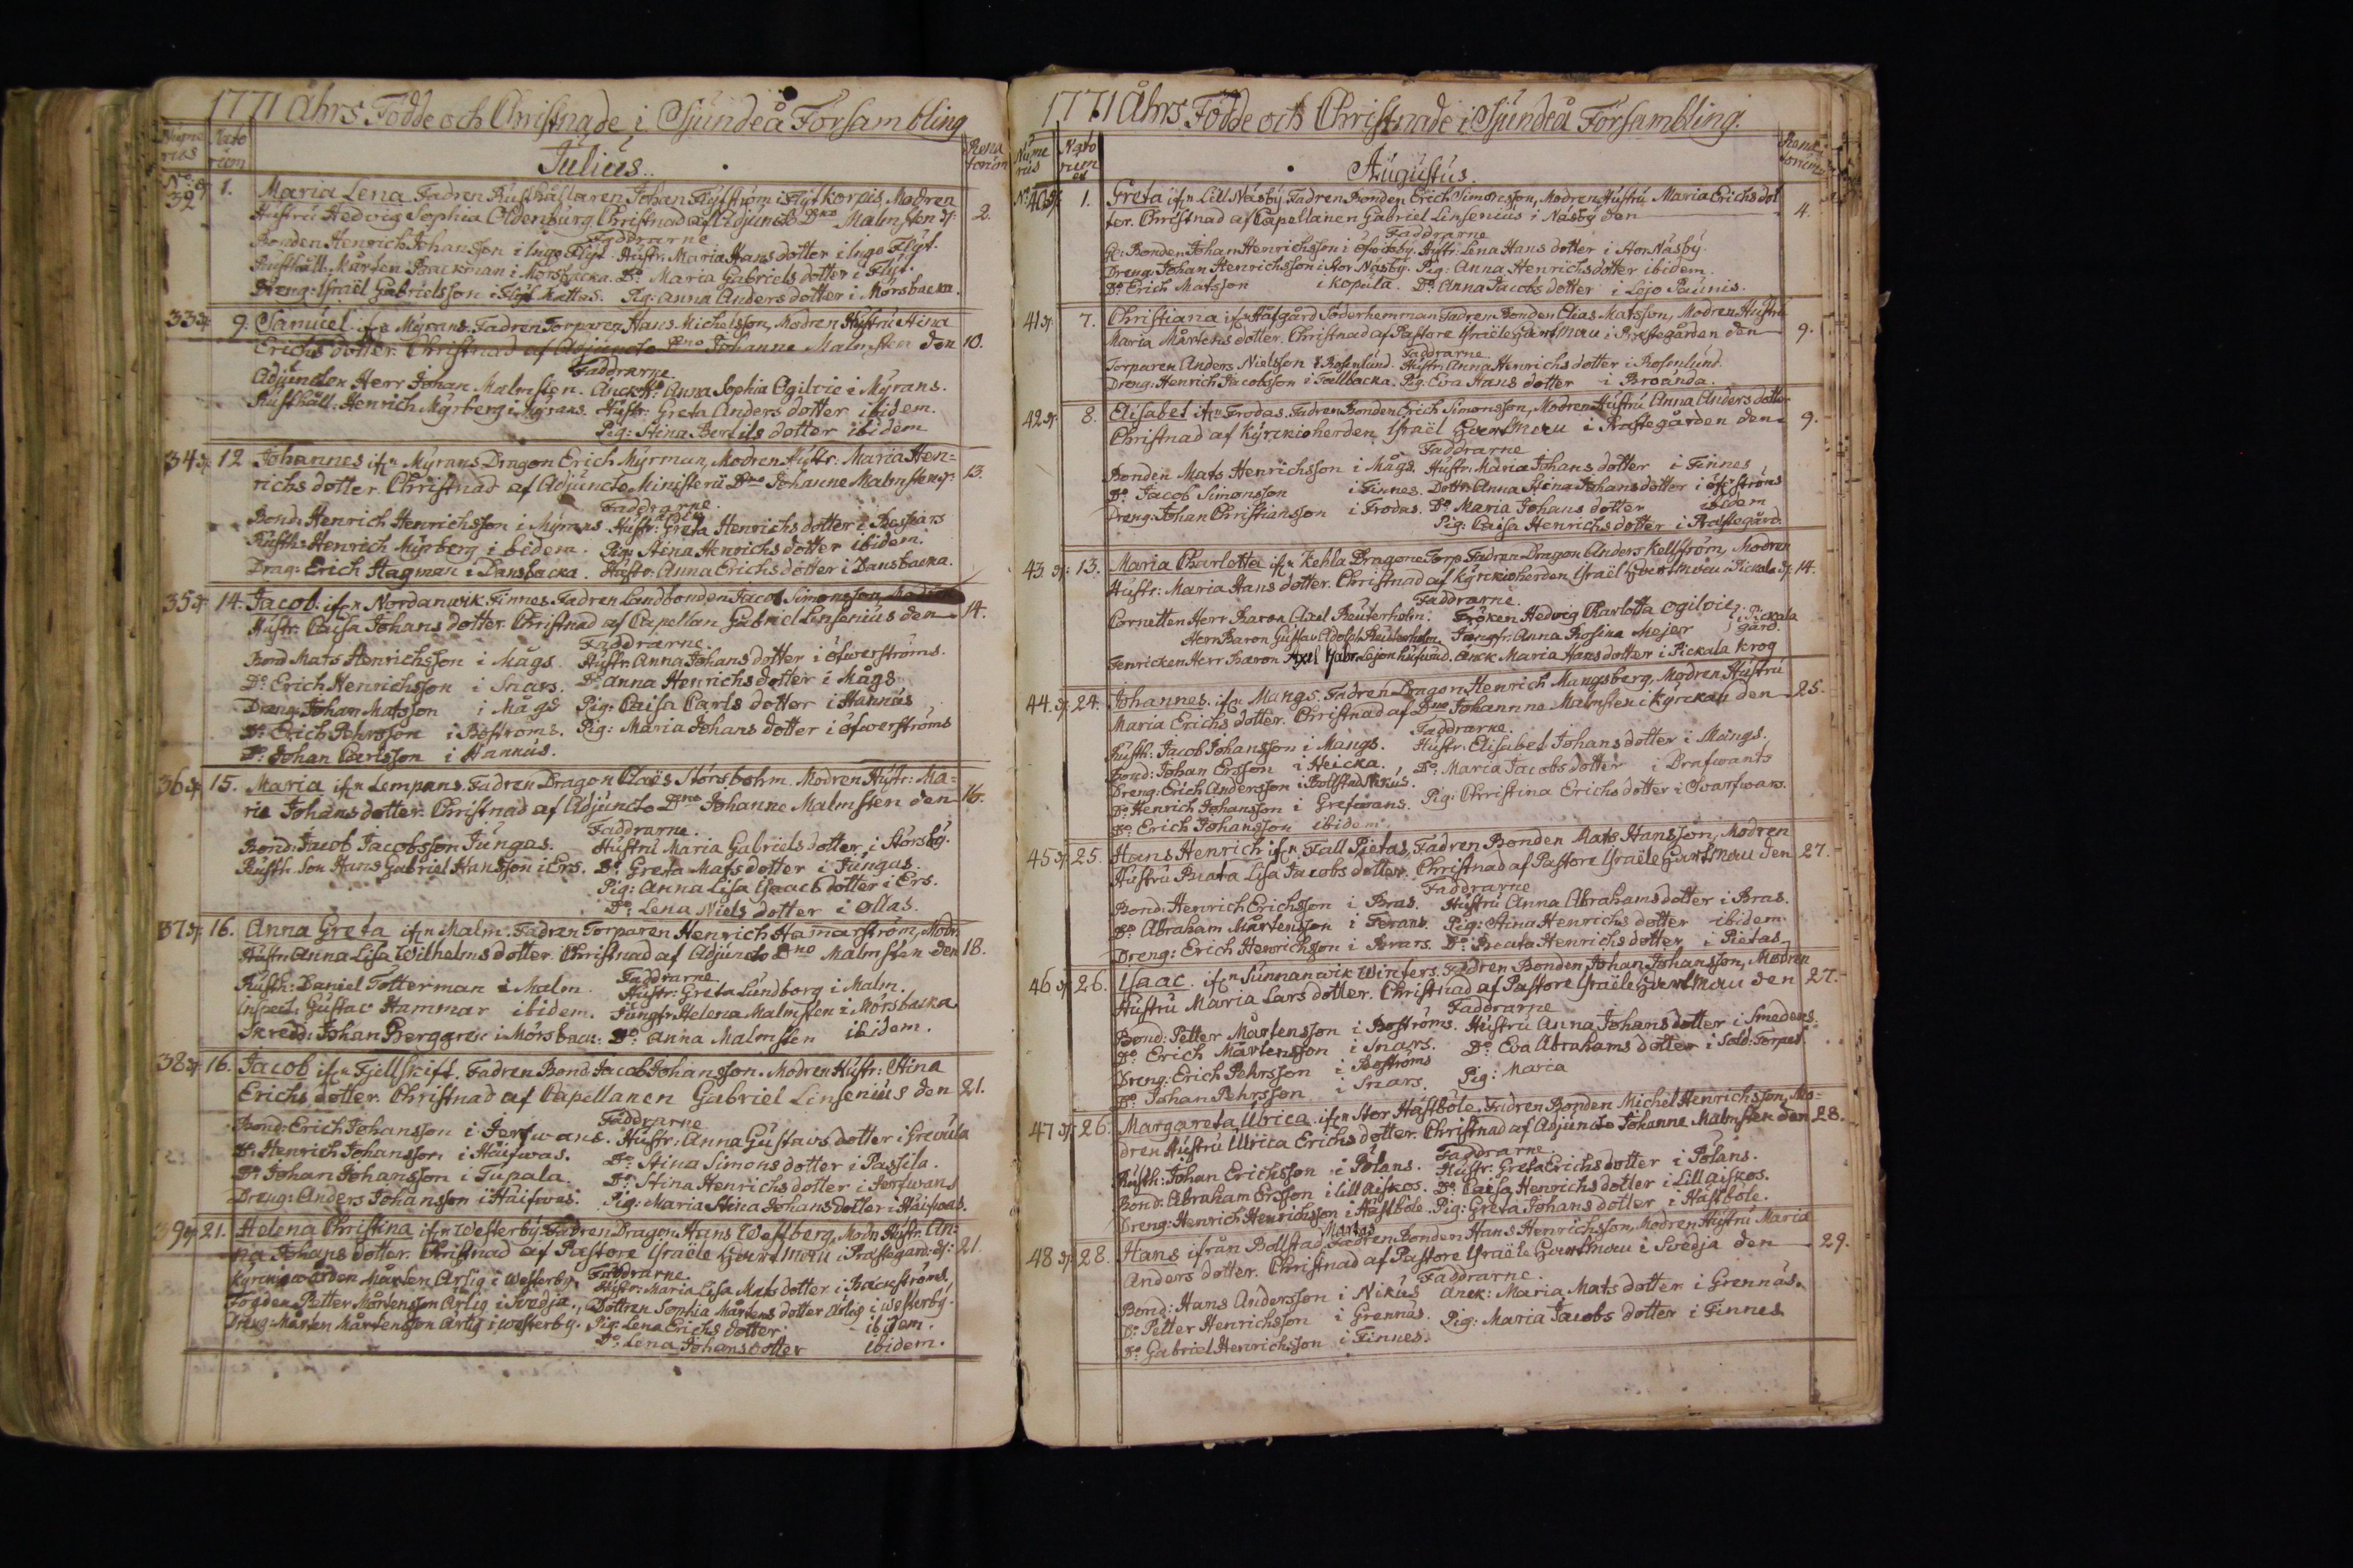 1771 Åhrs Födde och Christnade i Sjundeå Försambling
Nume Nato Rena
rus rum Julius. torum
No: 32 1. Maria Lena Fadren Rusthållaren Johan Flytström i Flytkorpis, Modren
Hustru Hedvig Sophia Oldenburg. Christnad af Adjuncto Dno Malmsten d: 2.
Faddrarne
Bonden Henrich Johansson i Ingo Flyt. Hustr: Maria Hans dotter i Ingo Flyt.
Rusthåll: Mårten Backman i Morsbacka. Do Maria Gabriels dotter i Flyt.
Dreng: Israël Gabrielsson i Flyt Mattas. Pig: Anna Anders dotter i Morsbacka.
33 9. Samuel ifrn Myrans. Fadren Torparen Hans Michelsson, Modren Hustru Stina
Erichs dotter. Christnad af Adjuncto Dno Johanne Malmsten den 10.
Faddrarne.
Adjuncten Herr Johan Malmsten. Anna Sophia Ogilvie i Myrans.
Rusthåll: Henrich Myrberg i Myrans. Hustr: Greta Anders dotter ibidem.
Pig: Stina Bertils dotter ibidem
34 12 Johannes ifrn Myrans Dragon Erich Myrman, Modren Hustr: Maria Hen=
richs dotter. Christnad af Adjuncto Ministerii Dno Johanne Malmsten 13.
Faddrarne.
Bond: Henrich Henrichsson i Myrans. Hustr: Greta Henrichs dotter i Bespars
Rusth: Henrich Myrberg ibidem. Pig: Stina Henrichs dotter ibidem.
Drag: Erich Hagman i Dansbacka. Hustr: Anna Erichs dotter i Dansbacka.
35 14. Jacob ifrn Nordanwik Finnes. Fadren Landbonden Jacob Simonsson, Modren
Hustr: Caisa Johans dotter. Christnad af Capellan Gabriel Linsenius den 14.
Faddrarne.
Bond Mats Henrichsson i Mågs. Hustr: Anna Johans dotter i öfwerströms.
Do Erich Henrichsson i Snars. Do Anna Henrichs dotter i Mågs
Dreng: Johan Matsson i Mågs Pig: Caisa Carls dotter i Hannus
Do Erich Pehrsson i Boströms. Pig: Maria Johans dotter i öfwerströms
Do Johan Carlsson i Hannus.
36 15. Maria ifrn Lempans. Fadren Dragon Claës Storbohm. Modren Hustr: Ma=
ria Johans dotter. Christnad af Adjuncto Dno Johanne Malmsten den 16.
Faddrarne.
Bond: Jacob Jacobsson Jungas. Hustru Maria Gabriels dotter i Storsby.
Rusth: Son Hans Gabriel Hansson i Ers. Do Greta Mats dotter i Jungas.
Pig: Anna Lisa Isaacs dotter i Ers.
Do: Lena Niels dotter i Ollas.
37 16. Anna Greta ifrn Malm. Fadren Torparen Henrich Hamarström, Modr:
Hustr: Anna Lisa Wilhelms dotter. Christnad af Adjuncto Dno Malmsten den 18.
Faddrarne
Rusth: Daniel Totterman i Malm. Hustr: Greta Lundborg i Malm.
Inspect: Gustac Hammar ibidem. Jungfr: Helena Malmsten i Morsbacka
Skredd: Johan Berggren i Morsback: Do Anna Malmsten ibidem.
38 16. Jacob ifrn Fjellskift. Fadren Bond: Jacob Johansson. Modren Hustr: Stina
Erichs dotter. Christnad af Capellanen Gabriel Linsenius den 21.
Faddrarne
Bond: Erich Johansson i Jerfwans. Hustr: Anna Gustavs dotter i Grevula
Do: Henrich Johansson i Haifwas. Do: Stina Simons dotter i Passila.
Do: Johan Johansson i Tupala. Do: Stina Henrichs dotter i Jerfwans
Dreng: Anders Johansson i Haifwas. Pig: Maria Stina Johans dotter i Haifwas.
39 21. Helena Christina ifrn Westerby. Fadren Dragon Hans Westberg, Modrn Hustr: An=
na Johans dotter. Christnad af Pastore Israële Gvartmau i Prästegård: d: 21.
Faddrarne.
Kyrkiowärden Mårten Arlig i Westerby. Hustr: Maria Lisa Mats dotter i Backströms.
Fogden Petter Mårtensson Arlig i Svedja. Dottren Sophia Mårtens dotter Arlig i Westerby.
Dreng: Mårten Mårtensson Arlig i Westerby. Pig: Lena Erichs dotter ibidem.
Do: Lena Johans dotter ibidem.
1771 Åhrs Födde och Christnade i Sjundeå Försambling.
Nume Nato Rena
rus rum Augustus. torum
No: 40 1. Greta ifrn Lill Näsby. Fadren Bonden Erich Simonsson, Modren Hustru Maria Erichs dot
ter. Christnad af Capellanen Gabriel Linsenius i Näsby den 4.
Faddrarne
Bonden Johan Henrichsson i Hustr: Lena Hans dotter i Stor Näsby.
Dreng: Johan Henrichsson i Stor Näsby. Pig: Anna Henrichs dotter ibidem.
Do Erich Matsson i Kopula. Do: Anna Jacobs dotter i Lojo Paunis.
41 7. Christiana ifrn Hafgård Söderhemman Fadren Bonden Elias Matsson, Modren Hustru
Maria Mårtens dotter. Christnad af Pastore Israële Gvartmau i Prestegården den 9.
Faddrarne.
Torparen Anders Nielsson i Rosenlund. Hustr: Anna Henrichs dotter i Rosenlund.
Dreng: Henrich Jacobsson i Fallbacka. Pig: Eva Hans dotter i Broända.
42 8. Elisabet ifrn Frodas. Fadren Bonden Erich Simonsson, Modren Hustru Anna Anders dotter
Christnad af Kyrkioherden Israël Gvartmau i Prästegården den 9.
Faddrarne
Bonden Mats Henrichsson i Mågs. Hustr: Maria Johans dotter i Finnes
Do: Jacob Simonsson i Finnes. Dottr: Anna Stina Johans dotter i öfrströms
Dreng: Johan Christiansson i Frodas. Do Maria Johans dotter ibidem
Pig: Caisa Henrichs dotter i Prästegård.
43. 13. Maria Charlotta ifrn Kehla Dragone Torp. Fadren Dragon Anders Kellström, Modren
Hustr: Maria Hans dotter. Christnad af Kyrkioherden Israël Gvartmau i Pickala d: 14.
Faddrarne.
Cornetten Herr Baron Axel Reuterholm. Fröken Hedvig Charlotta Ogilvie i Pickala
Herr Baron Gustav Adolph Reuterholm. Jungfr: Anna Rosina Mejer gård.
Fenricken Herr Baron Axel Gabr: Lejonhufwud. Enck Maria Hans dotter i Pickala krog
44. 24. Johannes. ifrn Mangs. Fadren Dragon Henrich Mangsberg, Modren Hustru
Maria Erichs dotter. Christnad af Dno Johannne Malmsten i Kyrckan den 25.
Faddrarne.
Rusth: Jacob Johansson i Mangs. Hustr: Elisabet Johans dotter i Mangs.
Bond: Johan Ersson i Heicka. Do: Maria Jacobs dotter i Drafwants
Dreng: Erich Andersson i Bollstad Nikus. Pig: Christina Erichs dotter i Qvarfwars.
Do: Henrich Johansson i Grefwans.
Do: Erich Johansson ibidem
45 25. Hans Henrich ifrn Fall Pietas, Fadren Bonden Mats Hansson, Modren
Hustru Beata Lisa Jacobs dotter. Christnad af Pastore Israële Gvartmau den 27.
Faddrarne
Bond: Henrich Erichsson i Bras. Hustru Anna Abrahams dotter i Bras.
Do Abraham Mårtensson i Ferans. Pig: Stina Henrichs dotter ibidem.
Dreng: Erich Henrichsson i Do: Beata Henrichs dotter i Pietas
46 26. Isaac. ifrn Sunnanwik Winters. Fadren Bonden Johan Johansson, Modren
Hustru Maria Lars dotter. Christnad af Pastore Israële Gvartmau den 27.
Faddrarne
Bond: Petter Mårtensson i Boströms. Hustru Anna Johans dotter i Smedens.
Do Erich Mårtensson i Snars. Do Eva Abrahams dotter i Sold: Torpet.
Dreng: Erich Pehrsson i Boströms Pig: Maria
Do Johan Pehrsson i Snars.
47 26. Margareta Ulrica ifrn Stor Hästböle. Fadren Bonden Michel Henrichsson, Mo=
dren Hustru Ulrica Erichs dotter. Christnad af Adjuncto Johanne Malmsten den 28.
Faddrarne.
Rusth: Johan Erichsson i Polans. Hustr: Greta Erichs dotter i Polans.
Bond: Abraham Ersson i lill Aiskos. Do Caisa Henrichs dotter i Lill aiskos.
Dreng: Henrich Henrichsson i Hästböle. Pig: Greta Johans dotter i Hästböle.
48 28. Hans ifrån Bollstad Martas Fadren Bonden Hans Henrichsson, Modren Hustru Maria
Anders dotter. Christnad af Pastore Israële Gvartmau i Svedja den 29.
Faddrarne.
Bond: Hans Andersson i Nikus Anck: Maria Mats dotter i Grennäs.
Do Petter Henrichsson i Grennäs. Pig: Maria Jacobs dotter i Finnes
Do Gabriel Henrichsson i Finnes.